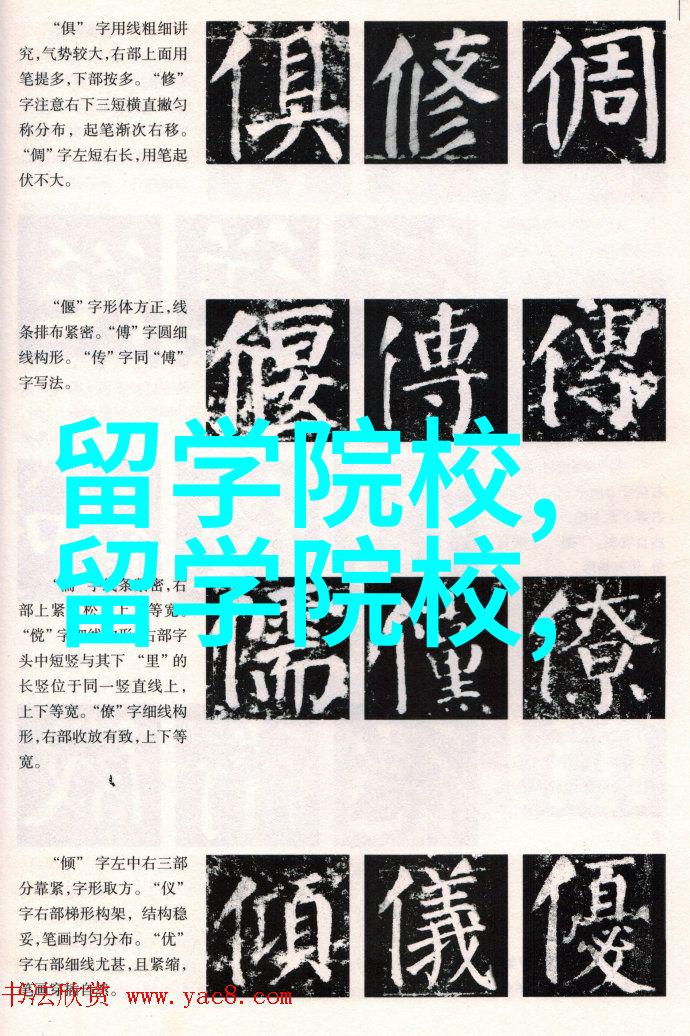 “俱” 字用线粗细讲
究，气势较大，右部上面用
笔提多，下部按多。“修”
字注意右下三短横直撇匀
称分布， 起笔渐次右移。
“倜”字左短右长，用笔起
伏不大。
俱 修 倜
“偃”字形体方正，线
条排布紧密。“傅”字圆细
线构形。“传”字同“傅”
字写法。
偃 傅 傳
留学院校，
留学院校，
字线条紧密，右
部上紧 松 上 等宽。
字细线 形 右部字
头中短竖与其下 “里”的
长竖位于同一竖直线上，
上下等宽。“僚”字细线构
形，右部收放有致，上下等
宽。
儒 僚
“倾” 字左中右三部
分靠紧，字形取方。“仪”
字右部梯形构架， 结构稳
妥，笔画均匀分布。“优”
字右部细线尤甚，且紧缩，
笔画穿插
傾 儀 優
书法欣赏 www.yac8.com